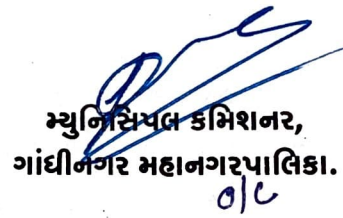 મ્યુનિસિપલ કમિશનર,
ગાંધીનગર મહાનગરપાલિકા.
o/c